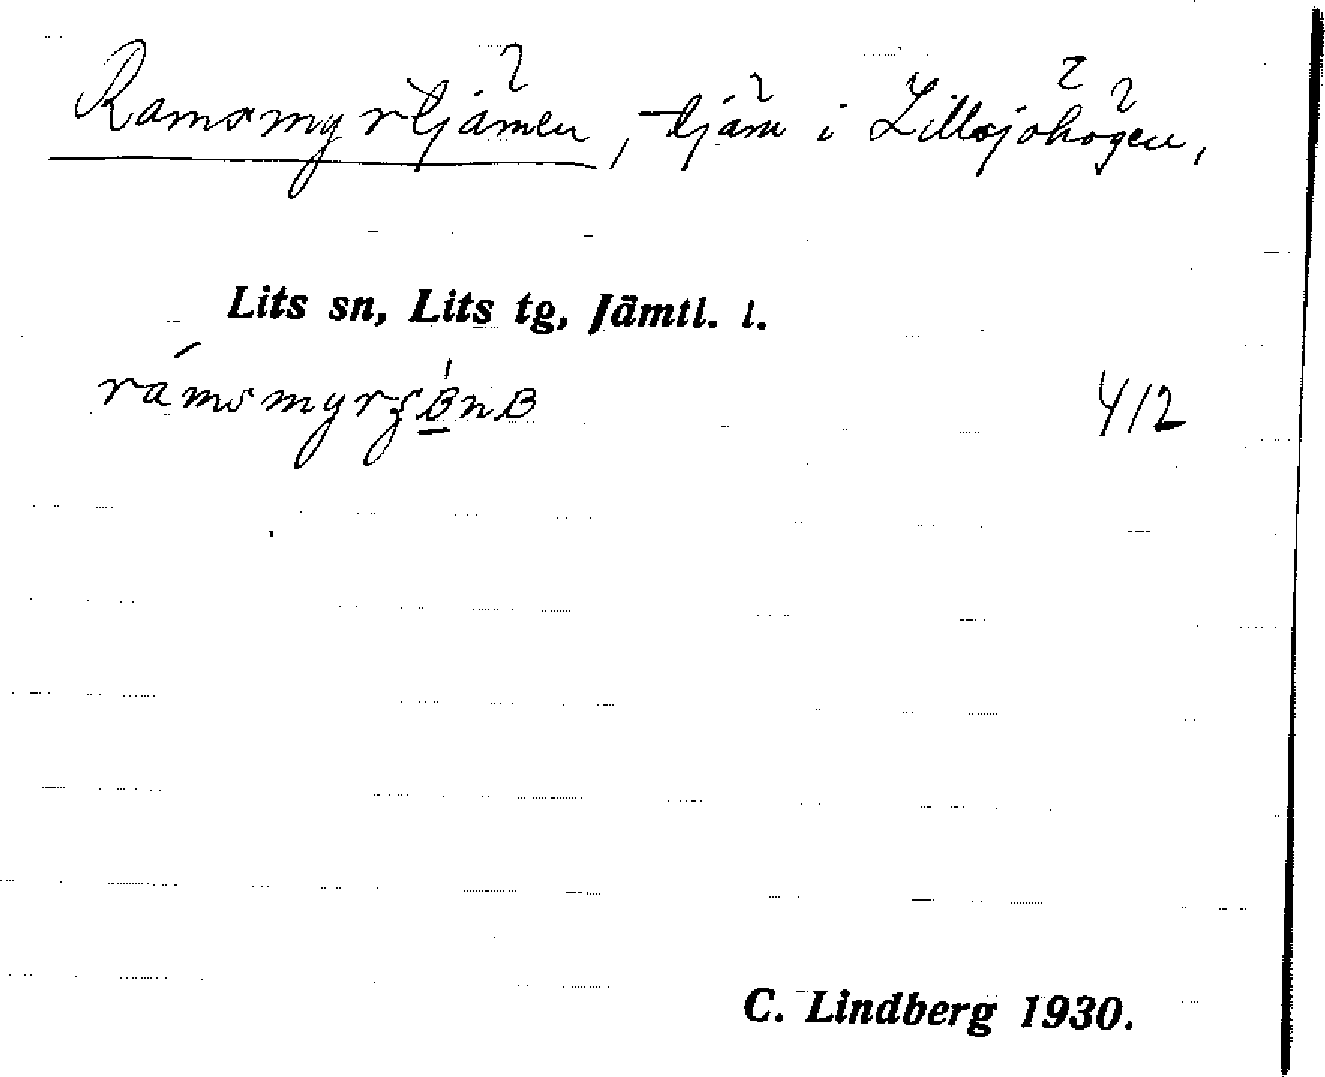 Ramsmyrtjämen, tjäm i Lillsjöhögen,
Lits sn, Lits tg, Jämtl. l.
412
C. Lindberg 1930.